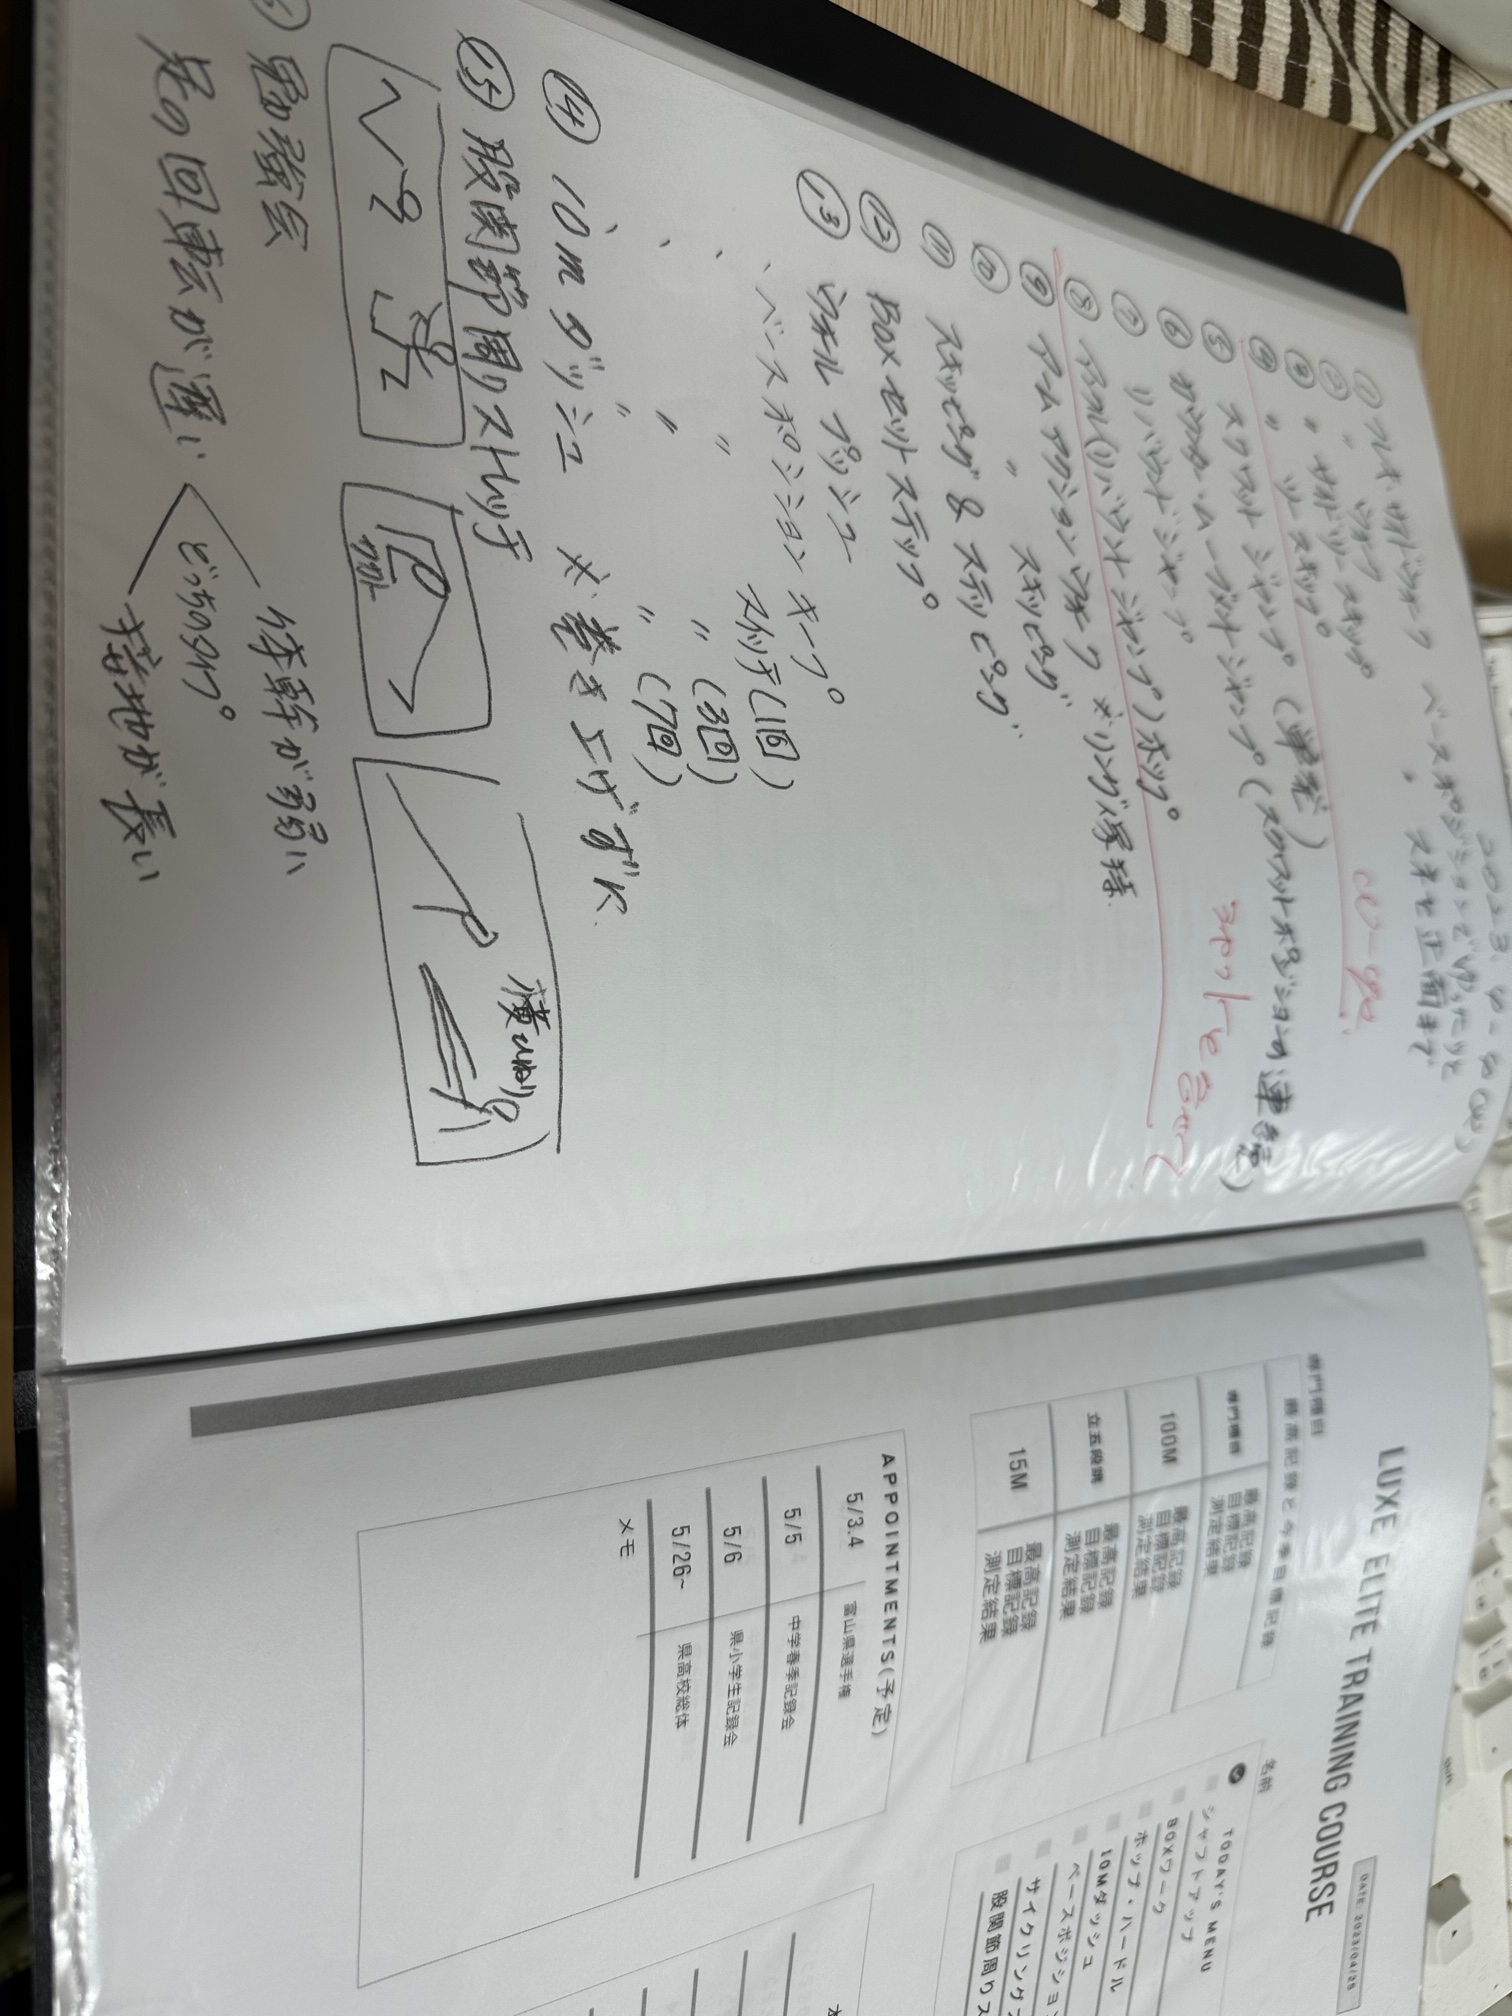 ① フレキ・サイドウォーク
② 〃 ウォーク
③ 〃 サイドツースキップ
④ 〃 ツースキップ
⑤ スクワットジャンプ（単発）
⑥ カウンタームーブメントジャンプ（スクワットポジションの連続）
⑦ リバウンドジャンプ
⑧ アンクル（リバウンドジャンプ）ホップ
⑨ アームアクションウォーク ※リング保持
⑩ 〃 スキッピング
⑪ スキッピング & ステッピング
⑫ BOXセットステップ
⑬ ウォールプッシュ
、ベースポジションキープ
、 〃 スイッチ（1回）
、 〃 〃（3回）
、 〃 〃（7回）
⑭ 10mダッシュ ※巻き上げずに
⑮ 股関節周りストレッチ
横ひねり
勉強会
足の回転が遅い
体幹が弱い
どっちのタイプ
接地が長い
LUXE ELITE TRAINING COURSE
DATE: 2023/04/28
専門種目
名前
最高記録と今季目標記録
専門種目
最高記録
目標記録
測定結果
100M
最高記録
目標記録
測定結果
立五段跳
最高記録
目標記録
測定結果
15M
最高記録
目標記録
測定結果
APPOINTMENTS(予定)
5/3.4 富山県選手権
5/5 中学春季記録会
5/6 県小学生記録会
5/26~ 県高校総体
メモ
TODAY'S MENU
シャフトアップ
BOXワーク
ホップ・ハードル
10Mダッシュ
ベースポジション
サイクリング
股関節周りス